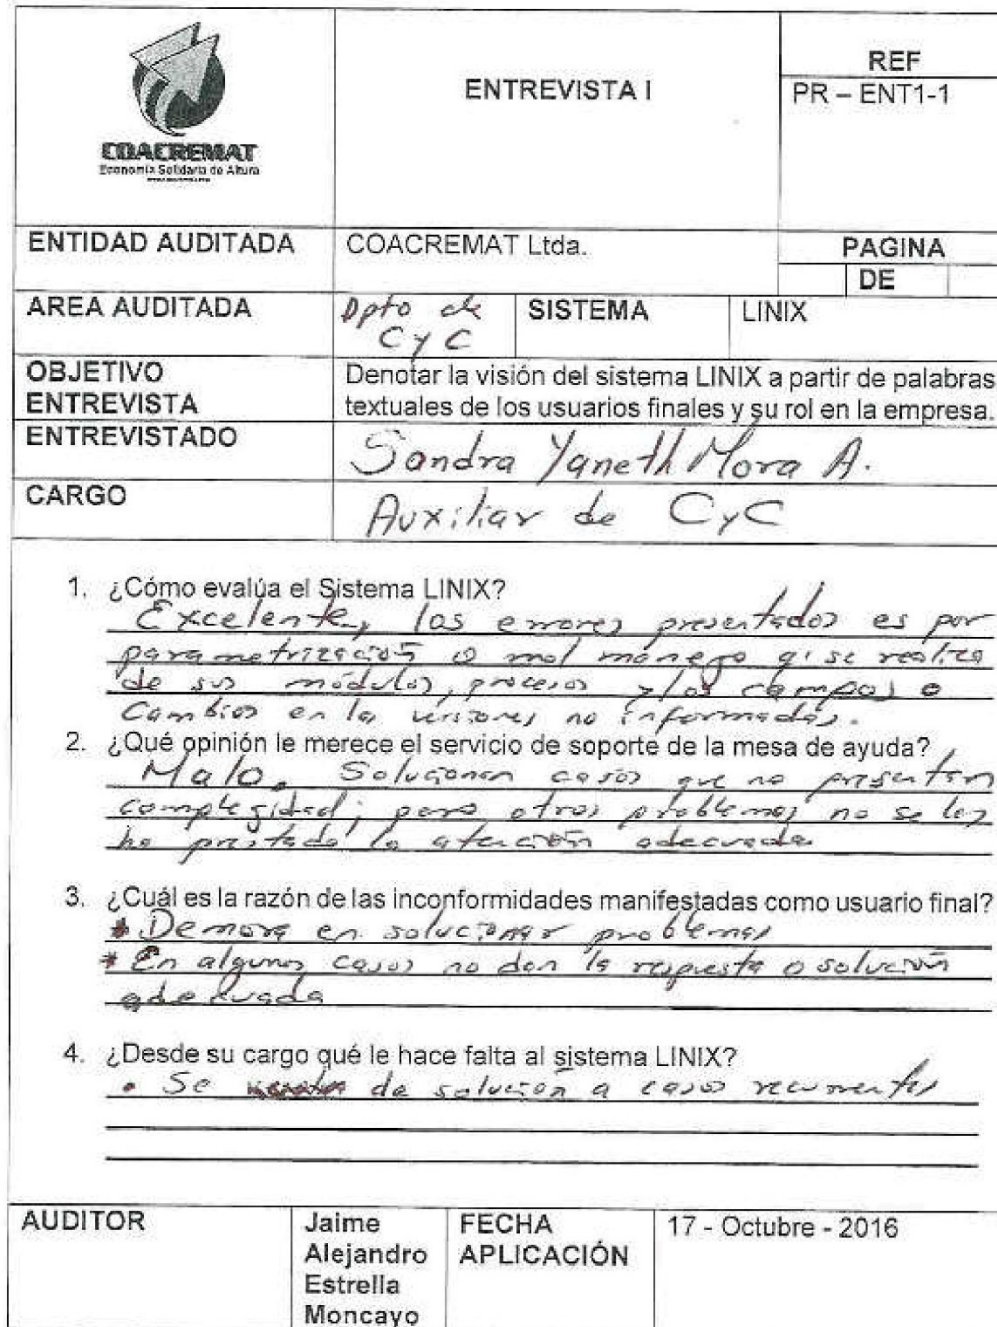 COACREMAT
Economía Solidaria de Altura
ENTREVISTA I
REF
PR – ENT1-1
ENTIDAD AUDITADA
COACREMAT Ltda.
PAGINA
DE
AREA AUDITADA
Dpto de
CyC
SISTEMA
LINIX
OBJETIVO
ENTREVISTA
Denotar la visión del sistema LINIX a partir de palabras
textuales de los usuarios finales y su rol en la empresa.
ENTREVISTADO
Sandra Yaneth Mora A.
CARGO
Auxiliar de CyC
1. ¿Cómo evalúa el Sistema LINIX?
Excelente, los errores presentados es por
parametrización o mal manego q' se realiza
de sus módulos, procesos y los campos o
Cambios en las versiones no informadas.
2. ¿Qué opinión le merece el servicio de soporte de la mesa de ayuda?
Malo. Solucionan casos que no presentan
complegidad; para otros problemas no se les
ha prestado la atención adecuada
3. ¿Cuál es la razón de las inconformidades manifestadas como usuario final?
* Demora en solucionar problemas
* En algunos casos no dan la respuesta o solución
adecuada
4. ¿Desde su cargo qué le hace falta al sistema LINIX?
• Se de solución a casos recurrentes
AUDITOR
Jaime
Alejandro
Estrella
Moncayo
FECHA
APLICACIÓN
17 - Octubre - 2016